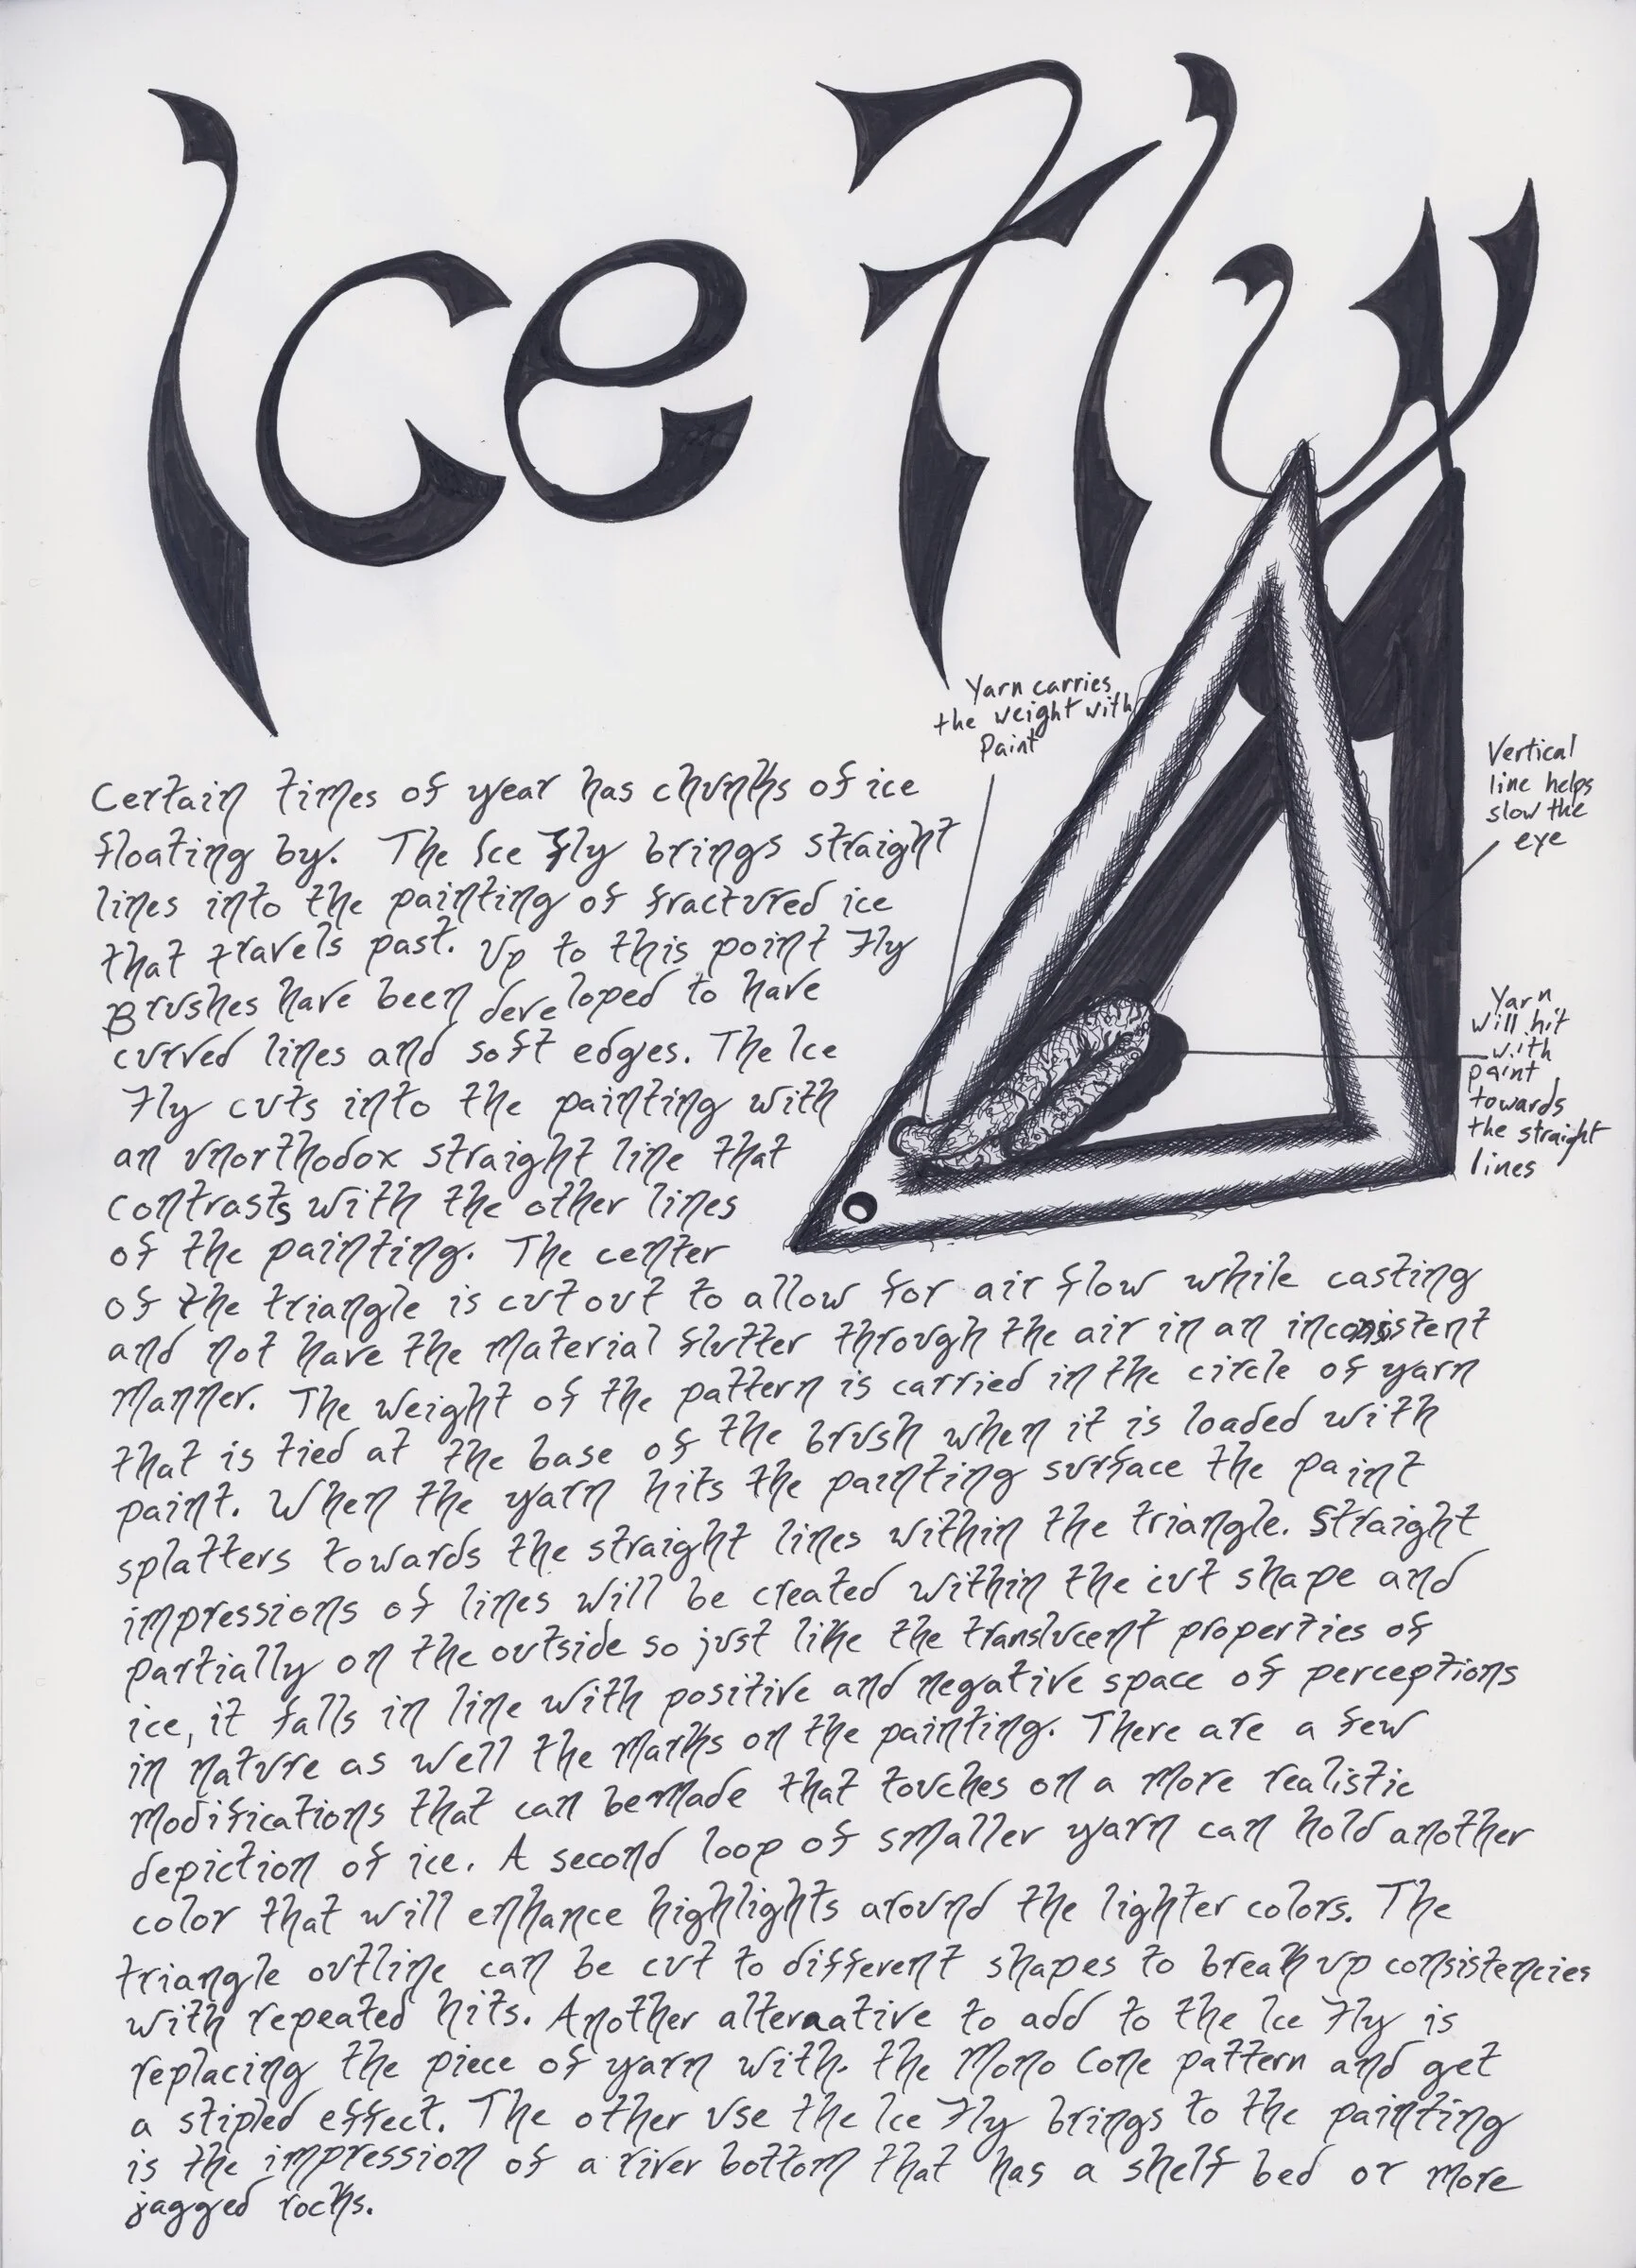 Ice Fly
Yarn carries
the weight with
Paint
Vertical
line helps
slow the
eye
Yarn
will hit
with
paint
towards
the straight
lines
Certain times of year has chunks of ice
floating by. The Ice Fly brings straight
lines into the painting of fractured ice
that travels past. Up to this point Fly
Brushes have been developed to have
curved lines and soft edges. The Ice
Fly cuts into the painting with
an unorthodox straight line that
contrasts with the other lines
of the painting. The center
of the triangle is cut out to allow for air flow while casting
and not have the material flutter through the air in an inconsistent
manner. The weight of the pattern is carried in the circle of yarn
that is tied at the base of the brush when it is loaded with
paint. When the yarn hits the painting surface the paint
splatters towards the straight lines within the triangle. Straight
impressions of lines will be created within the cut shape and
partially on the outside so just like the translucent properties of
ice, it falls in line with positive and negative space of perceptions
in nature as well the marks on the painting. There are a few
modifications that can be made that touches on a more realistic
depiction of ice. A second loop of smaller yarn can hold another
color that will enhance highlights around the lighter colors. The
triangle outline can be cut to different shapes to break up consistencies
with repeated hits. Another alternative to add to the Ice Fly is
replacing the piece of yarn with the Mono Cone pattern and get
a stipled effect. The other use the Ice Fly brings to the painting
is the impression of a river bottom that has a shelf bed or more
jagged rocks.